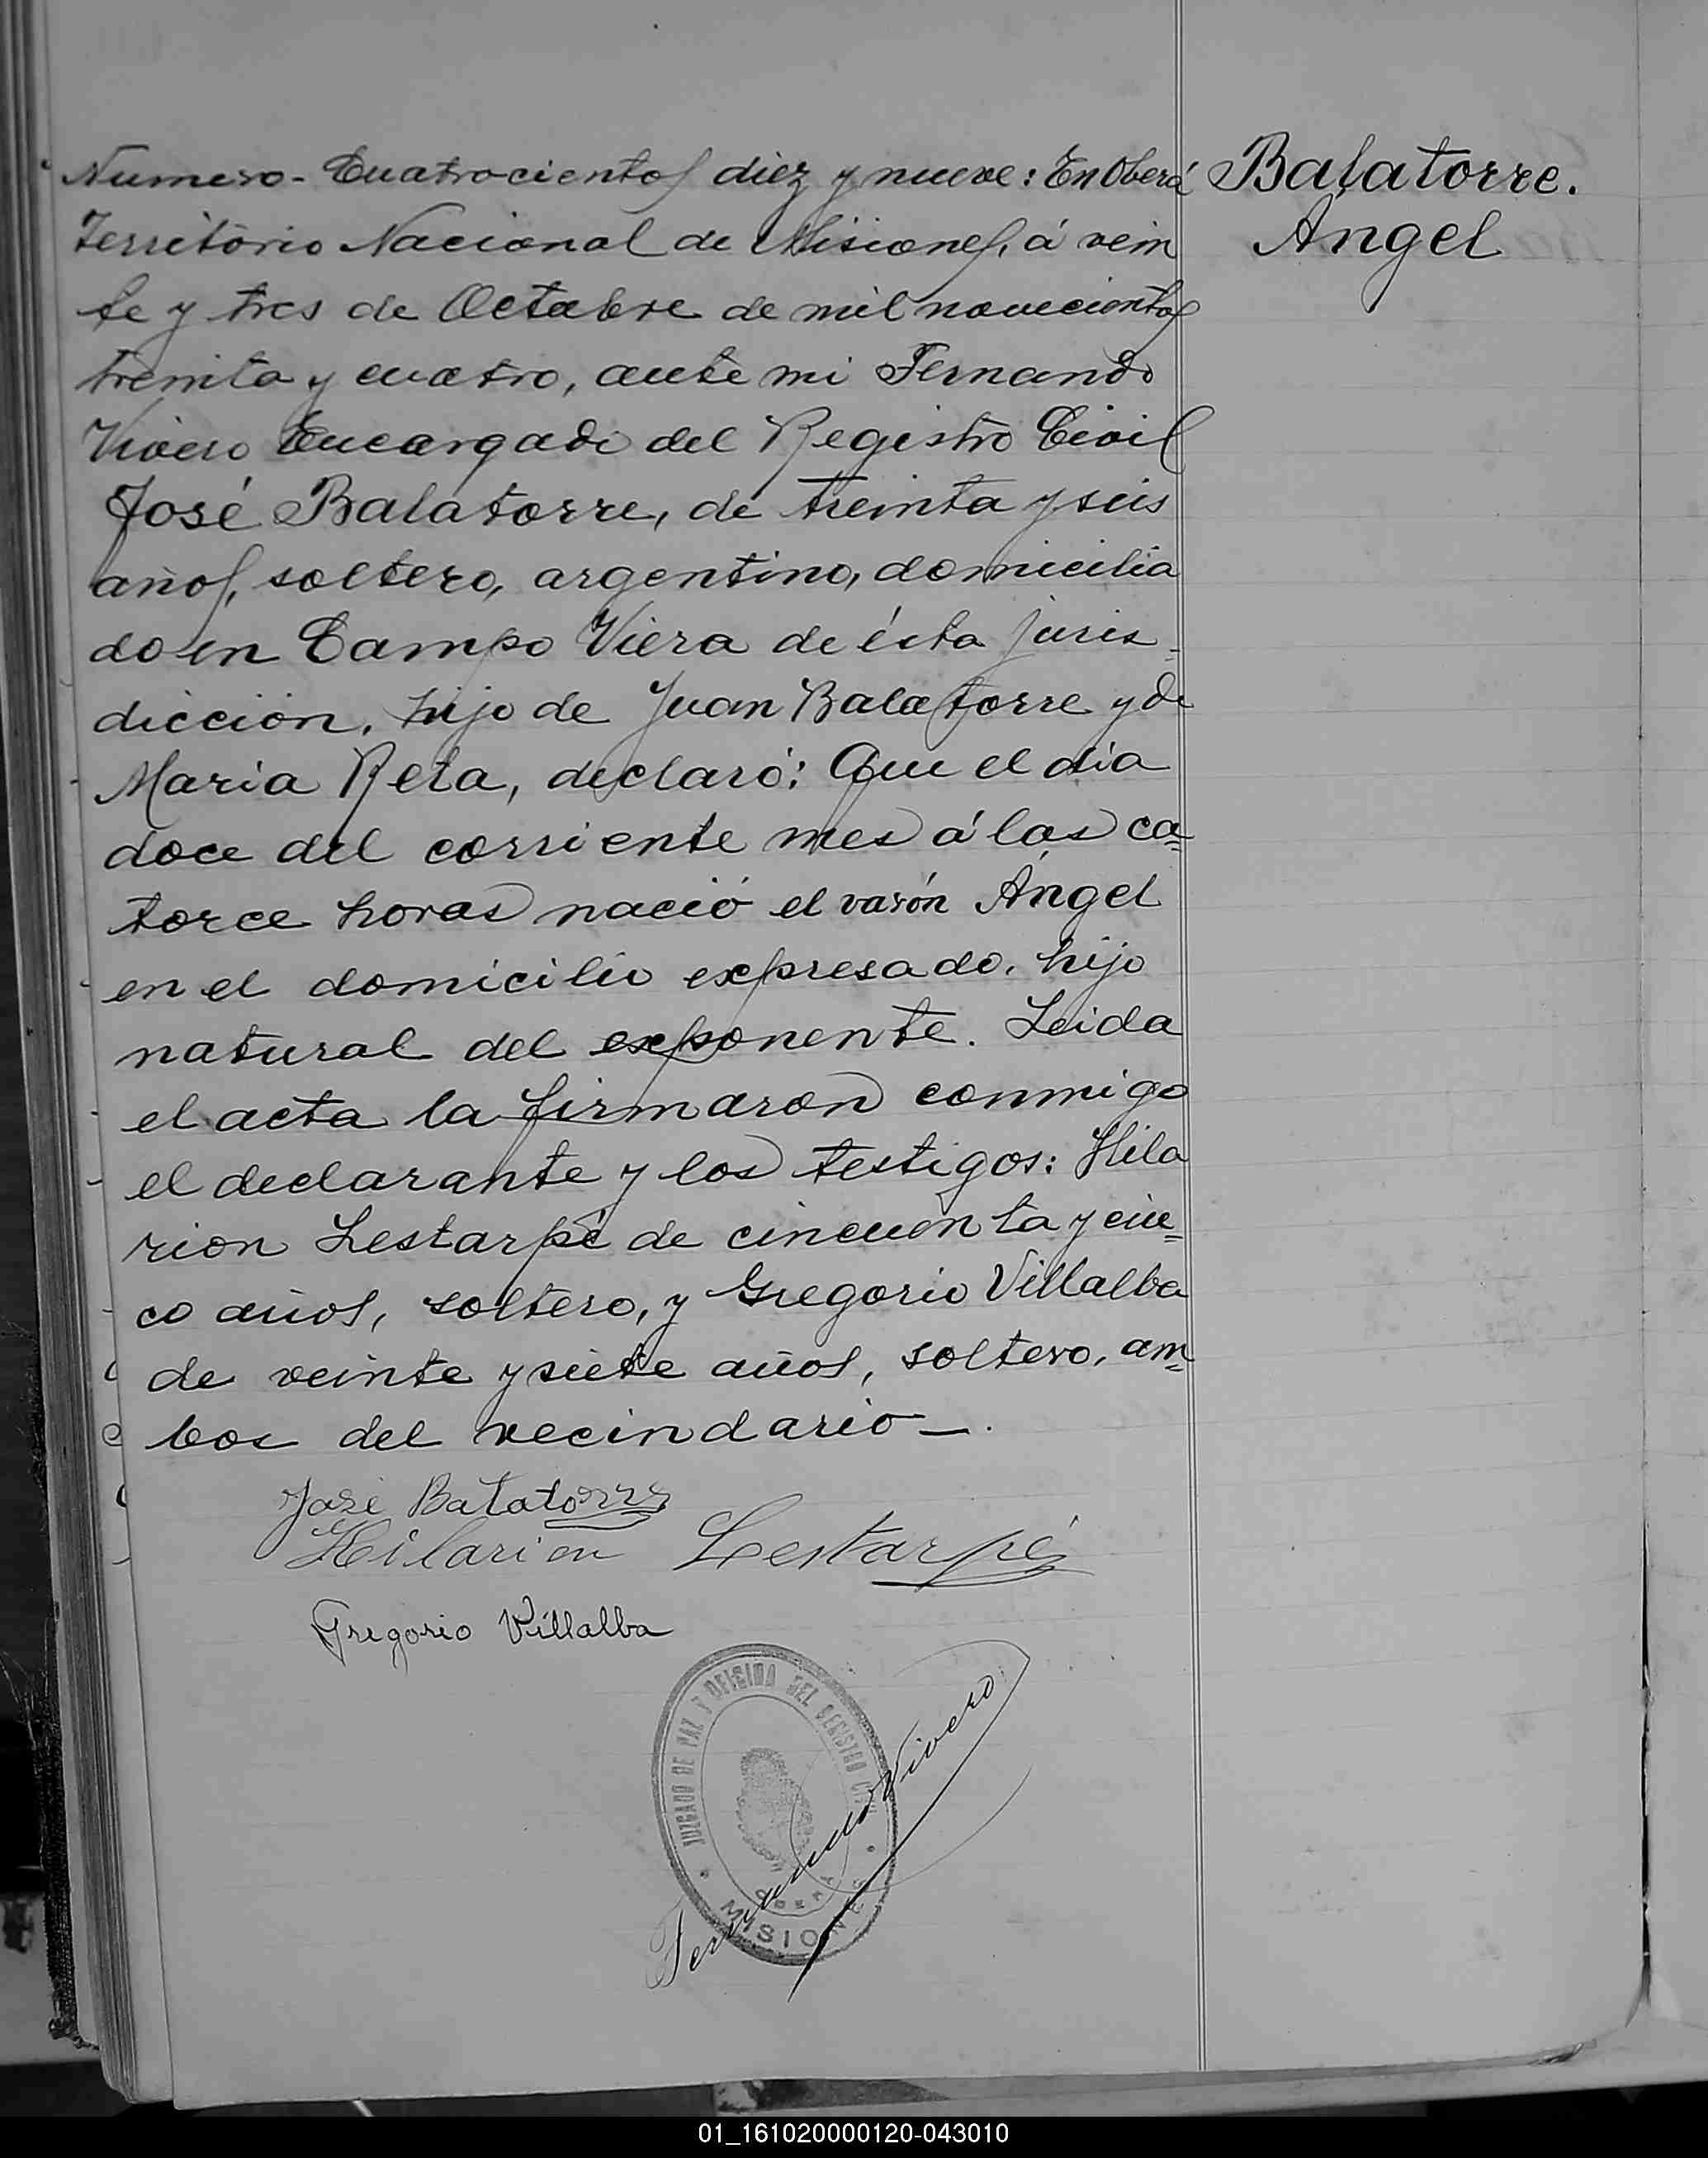 Numero - Cuatrocientos diez y nueve: En Oberá
Territorio Nacional de Misiones, á vein
te y tres de Octubre de mil novecientos
treinta y cuatro, ante mi Fernando
Vivero Encargado del Registro Civil
José Balatorre, de treinta y seis
años, soltero, argentino, domicilia
do en Campo Viera de ésta juris=
dicción, hijo de Juan Balatorre y de
Maria Reta, declaró: Que el dia
doce del corriente mes á las ca=
torce horas nació el varón Ángel
en el domicilio expresado, hijo
natural del exponente. Leida
el acta la firmaron conmigo
el declarante y los testigos: Hila
rion Lestarpé de cincuenta y cin=
co años, soltero, y Gregorio Villalba
de veinte y siete años, soltero, am=
bos del vecindario—.
Balatorre.
Ángel
José Balatorre
Hilarion Lestarpé
Gregorio Villalba
JUZGADO DE PAZ Y OFICINA DEL REGISTRO CIVIL
OBERA
MISIONES
Fernando Vivero
01_161020000120-043010